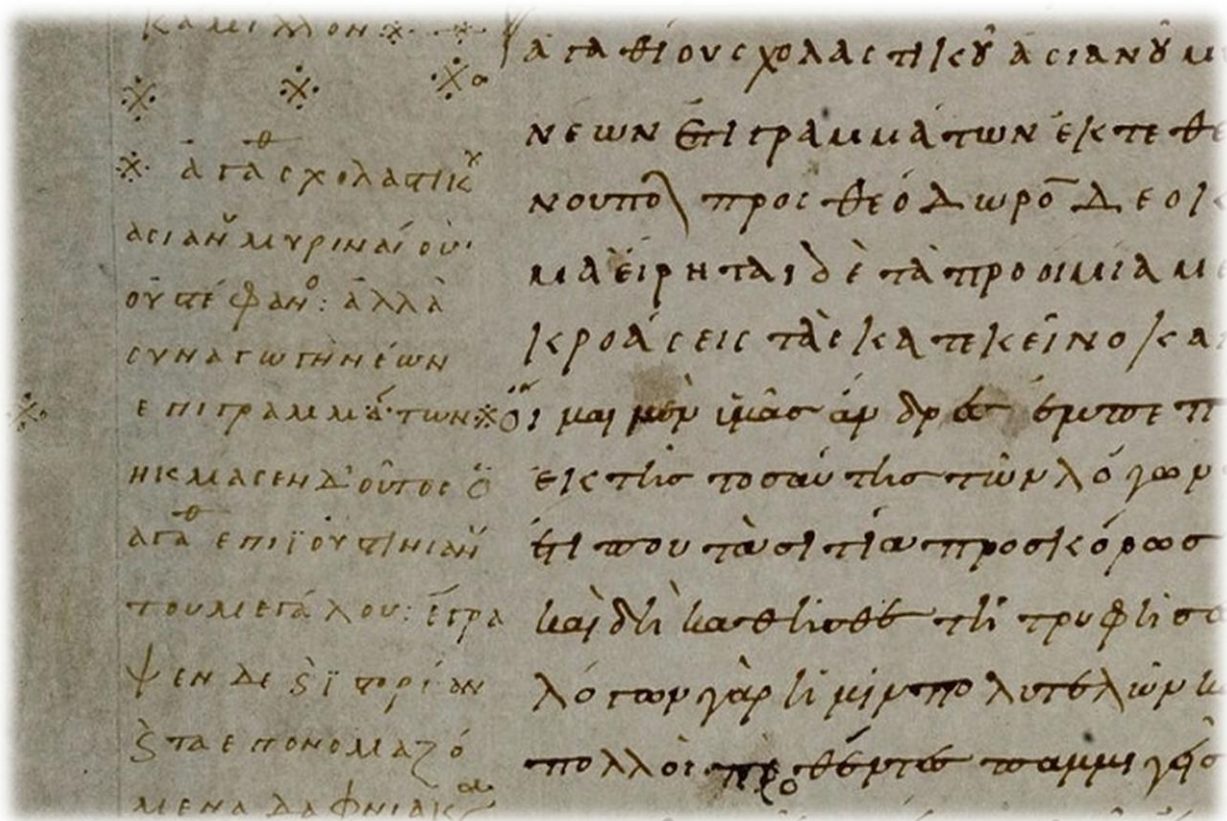 καμιλλον
ἀγαθ σχολαστικ
ασιαν μυριναίου·
οὐ στέφαν: ἀλλὰ
συναγωγὴ νέων
ἐπιγραμμάτων
ἤκμασεν δ' οὗτος ὁ
αγαθ επι ϊουστινιαν
του μεγάλου: ἔγρα
ψεν δε ϊστορίαν
τα επονομαζό
μενα δαφνιακ
ἀγαθίου σχολαστικοῦ ἀσιανοῦ μ
νέων ἐπιγραμμάτων ἐκτεθ
νουπολ προς θεόδωρο δεο
μα εἴρηται δὲ τὰ προοίμια με
κροάσεις τὰς κατ εκεῖνο κα
οἶμαι μὲν ὑμᾶσ ἄνδρασ ἐμπε π
ἐκ τῆσ τοσαύτησ τῶν λόγων
ἔτι που τὰ σιτία προσκόρωσ
καὶ δὴ κάθησθε τῆ τρυφῆ σε
λόγων γὰρ ἡμῖν πολυτελῶν κ
πολλοὶ προθέντεσ παμμιγεῖσ